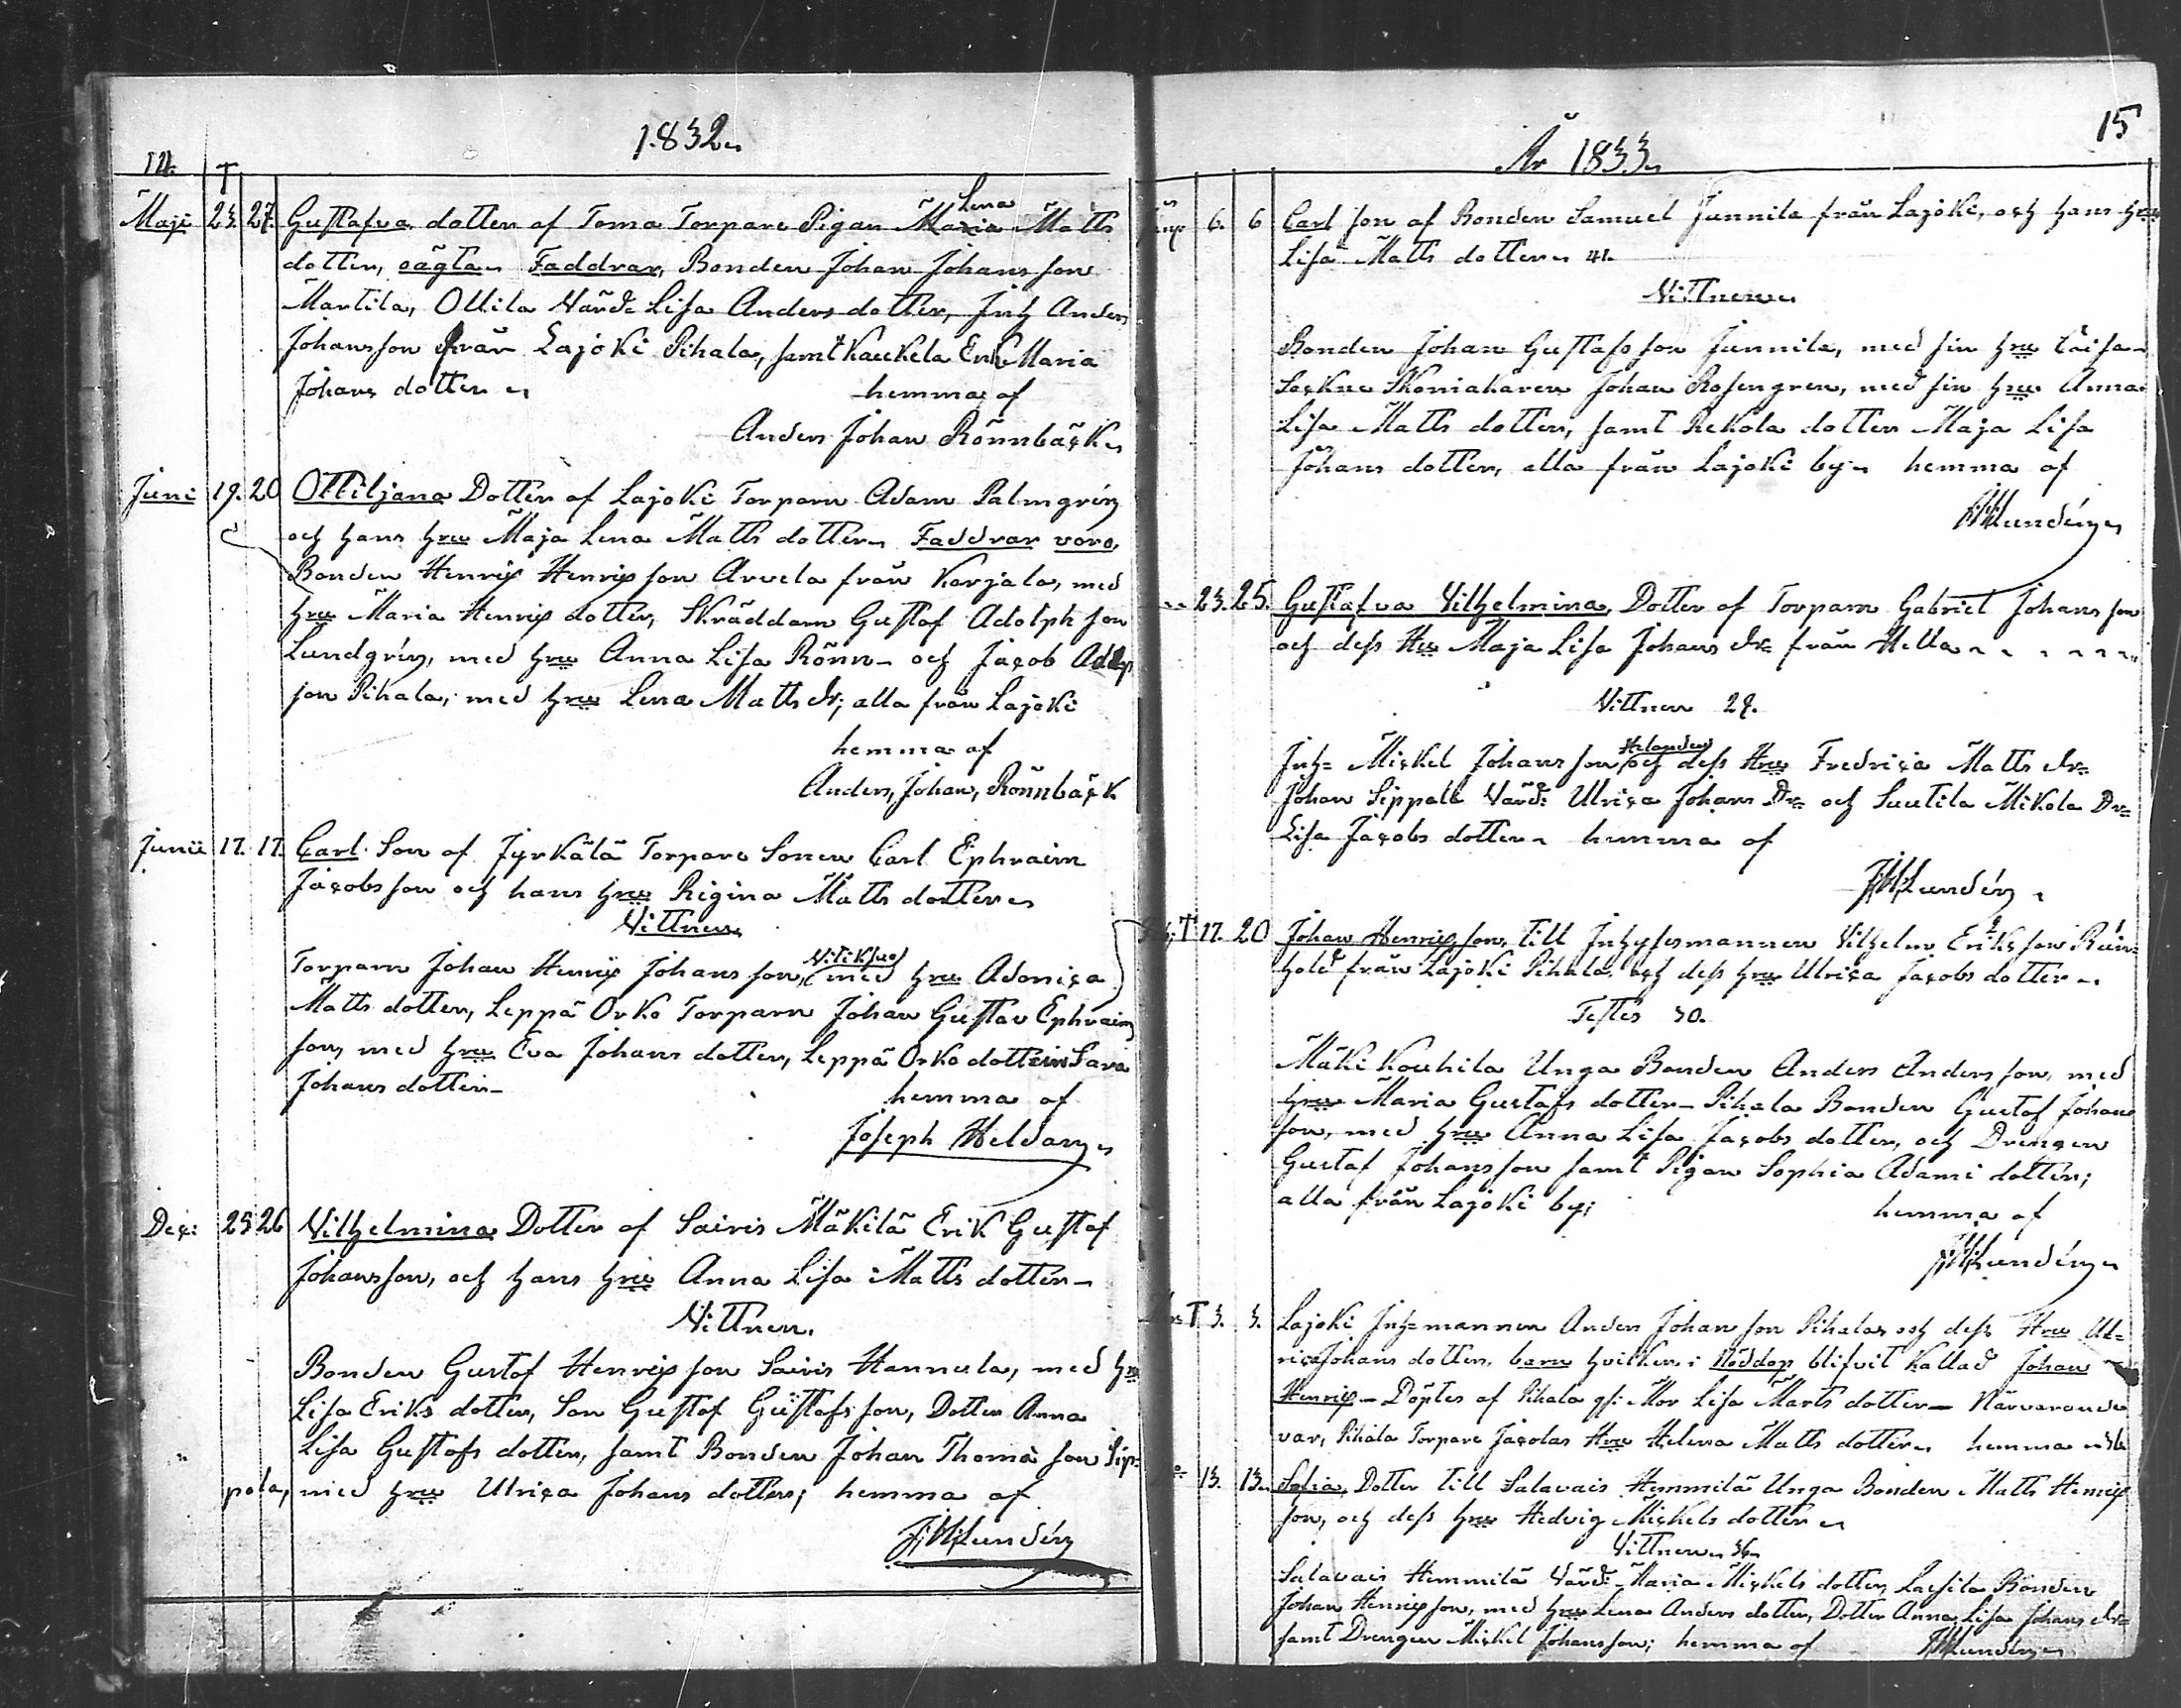 1832.
14. T
Maji 23. 27. Gustafva, dotter af Toma Torpare Pigan Maria Lena Matts
dotter, oägta. Faddrar, Bonden Johan Johansson
Martila, Ollila Värd: Lisa Anders dotter, Inh Anders
Johansson från Lajoki Pihala, samt Kaukela Enk Maria
Johans dotter hemma af
Anders Johan Rönnbäck
Juni 19. 20 Ottiljana Dotter af Lajoki Torparn Adam Palmgrén
och hans hru Maja Lena Matts dotter. Faddrar voro,
Bonden Henric Henricsson Arvela från Karjala, med
hru Maria Henrics dotter, Skräddarn Gustaf Adolphson
Lundgrén, med hru Anna Lisa Rönn och Jacob
son Pihala, med hru Lena Matts dr, alla från Lajoki
hemma af
Anders, Johan, Rönnbäck
Junii 17. 17. Carl Son af Jyrkälä Torpare Sonen Carl Ephraim
Jacobsson och hans hru Regina Matts dotter
Vittnen
Torparn Johan Henric Johansson, med hru Adonica
Matts dotter, Leppä Orko Torparn Johan Gustav Ephraims
son, med hru Eva Johans dotter, Leppä Orko dottren Sara
Johans dotter
hemma af
Joseph Heldan
Dec: 25 26 Vilhelmina Dotter af Sairis Mäkilä Erik Gustaf
Johansson, och hans hru Anna Lisa Matts dotter
Vittnen.
Bonden Gustaf Henricsson Sairis Hannula, med hru
Lisa Eriks dotter, Son Gustaf Gustafsson, Dotter Anna
Lisa Gustafs dotter, samt Bonden Johan Thomasson Sip-
pola, med hru Ulrica Johans dotter; hemma af
Lundén
År 1833. 15
6. 6 Carl son af Bonden Samuel Junnila från Lajoki, och hans hru
Lisa Matts dotter 41.
Vittnen
Bonden Johan Gustafsson Junnila, med sin hru Caisa
Skomakaren Johan Rosengren, med sin hru Anna
Lisa Matts dotter, samt Rekola dotter Maja Lisa
Johans dotter, alla från Lajoki by hemma af
Lundén
23. 25. Gustafva Vilhelmina, Dotter af Torparn Gabriel Johansson
och dess Hru Maja Lisa Johans dr från Hella
Vittnen 29.
Inh- Mickel Johansson Helander och dess Hru Fredrica Matts dr
Johan Sippala Värd: Ulrica Johans Dr och Suutila Mikola Dr
Lisa Jacobs dotter hemma af
Lundén
T 17. 20 Johan Henricsson, till Inhysesmannen Vilhelm Eriksson Rein-
hold från Lajoki Pihala, och dess hru Ulrica Jacobs dotter
Testes 30.
Mäki Kouhila Unga Bonden Anders Andersson, med
hru Maria Gustafs dotter Pihala Bonden Gustaf Johans
son, med hru Anna Lisa Jacobs dotter, och Drengen
Gustaf Johansson samt Pigan Sophia Adami dotter;
alla från Lajoki by; hemma af
Lundén
T 3. 3. Lajoki Inh-mannen Anders Johansson Pihalas och dess Hru Ul-
rica Johans dotter, barn hvilken i Nöddop blifvit kallad Johan
Henric Döptes af Pihala gf: Mor Lisa Marts dotter Närvarande
var, Pihala Torpare Jacolas Hru Helena Matts dotter hemma
13. 13. Sofia, Dotter till Salavais Hemmilä Unga Bonden Matts Henric
son, och dess hru Hedvig Mickels dotter
Vittnen 36
Salavais Hemmilä Värd: Maria Mickels dotter, Laesila Bonden
Johan Henricsson, med hru Lena Anders dotter, Dotter Anna Lisa Johans dr
samt Drengen Mickel Johansson; hemma af Lundén